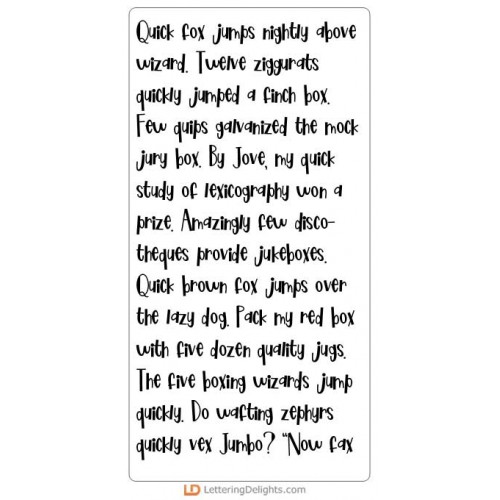 Quick fox jumps nightly above
wizard. Twelve ziggurats
quickly jumped a finch box.
Few quips galvanized the mock
jury box. By Jove, my quick
study of lexicography won a
prize. Amazingly few disco-
theques provide jukeboxes.
Quick brown fox jumps over
the lazy dog. Pack my red box
with five dozen quality jugs.
The five boxing wizards jump
quickly. Do wafting zephyrs
quickly vex Jumbo? "Now fax
LD LetteringDelights.com